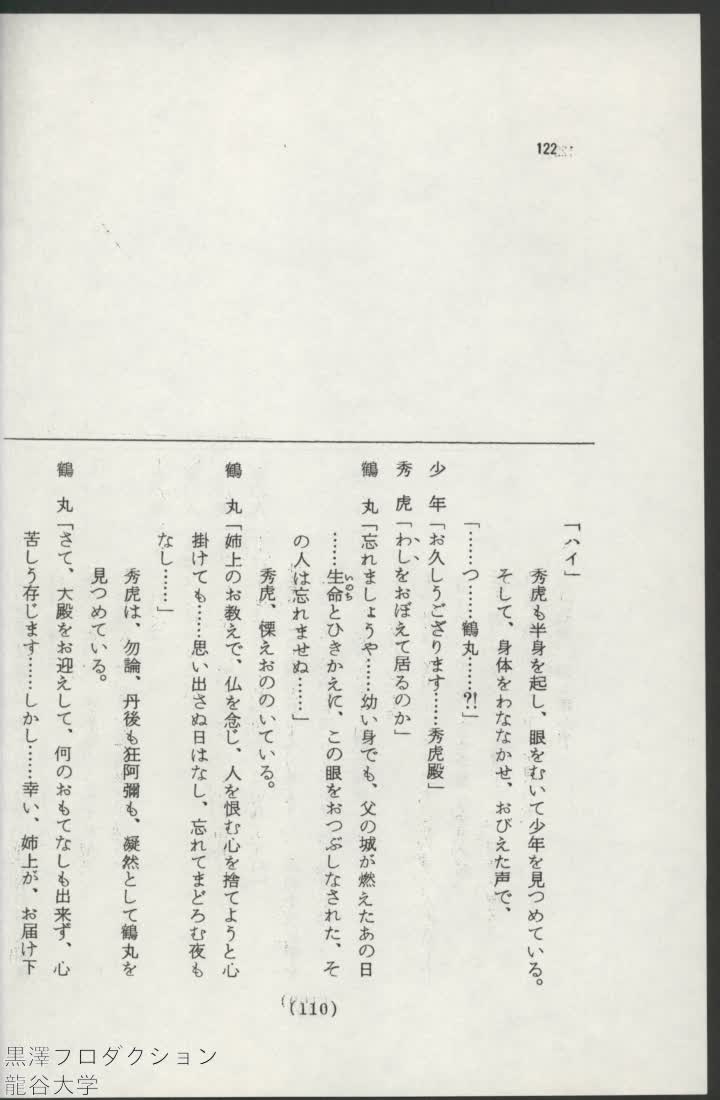 122
「ハイ」
秀虎も半身を起し、眼をむいて少年を見つめている。
そして、身体をわななかせ、おびえた声で、
「……つ……鶴丸……?!」
少　年「お久しうござります……秀虎殿」
秀　虎「わしをおぼえて居るのか」
鶴　丸「忘れましょうや……幼い身でも、父の城が燃えたあの日
……生命とひきかえに、この眼をおつぶしなされた、そ
いのち
の人は忘れませぬ……」
秀虎、慄えおののいている。
鶴　丸「姉上のお教えで、仏を念じ、人を恨む心を捨てようと心
掛けても……思い出さぬ日はなし、忘れてまどろむ夜も
なし……」
秀虎は、勿論、丹後も狂阿彌も、凝然として鶴丸を
見つめている。
鶴　丸「さて、大殿をお迎えして、何のおもてなしも出来ず、心
苦しう存じます……しかし……幸い、姉上が、お届け下
(110)
黒澤フロダクション
龍谷大学